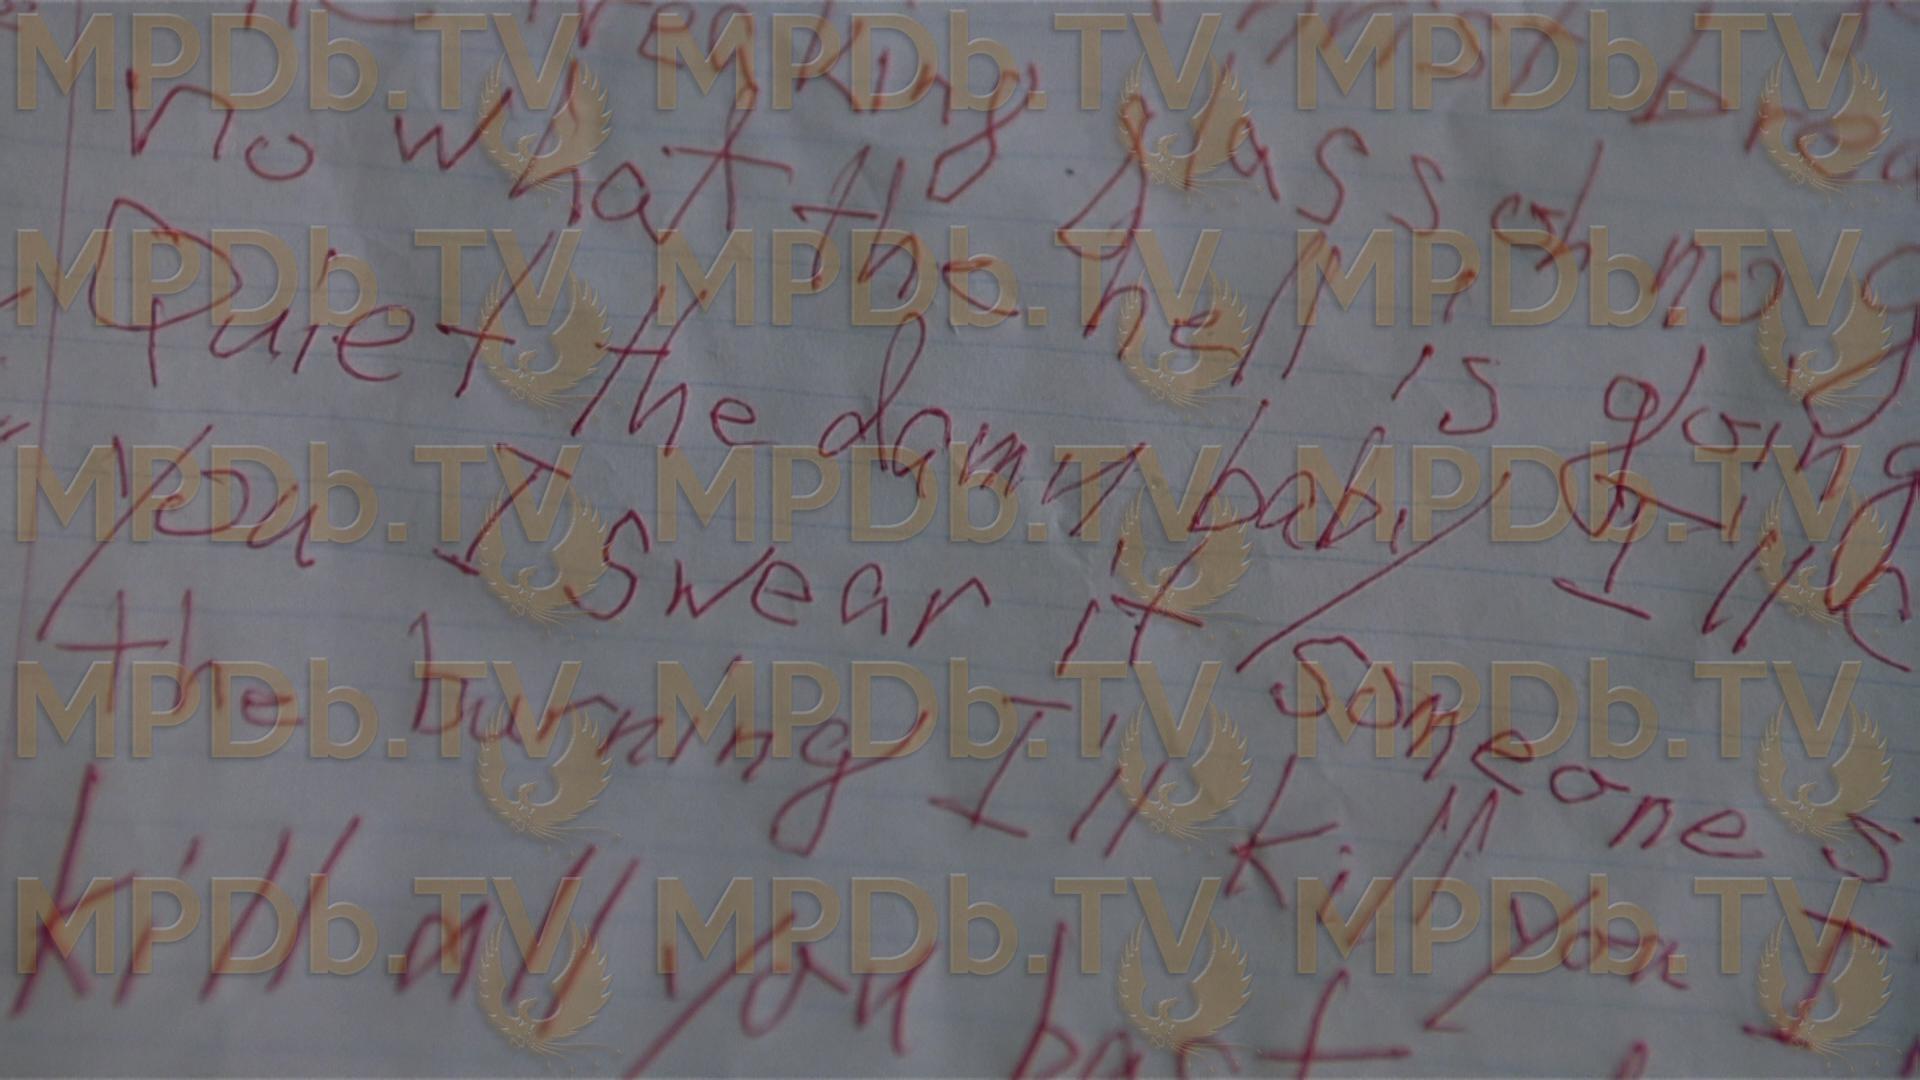 glass oh no
no what the hell is going
Quiet the damn baby I'll
you I swear it someone s
the burning I'll kill you I
kill all you bast
MPDb.TV MPDb.TV MPDb.TV
MPDb.TV MPDb.TV MPDb.TV
MPDb.TV MPDb.TV MPDb.TV
MPDb.TV MPDb.TV MPDb.TV
MPDb.TV MPDb.TV MPDb.TV